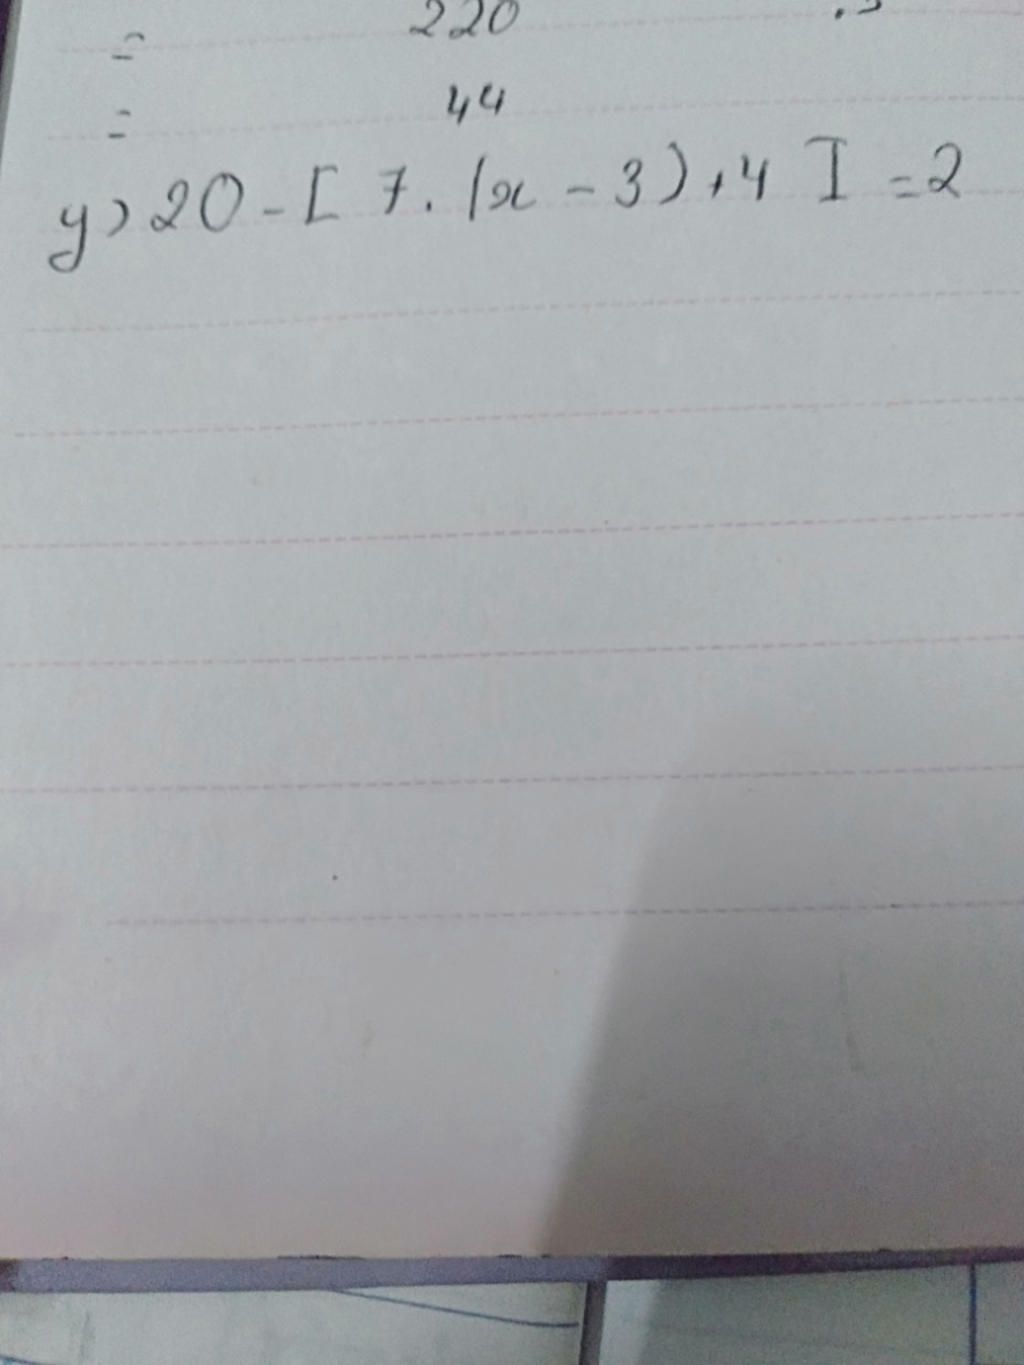 = 220
= 44
y) 20 - [ 7. (x - 3) + 4 ] = 2